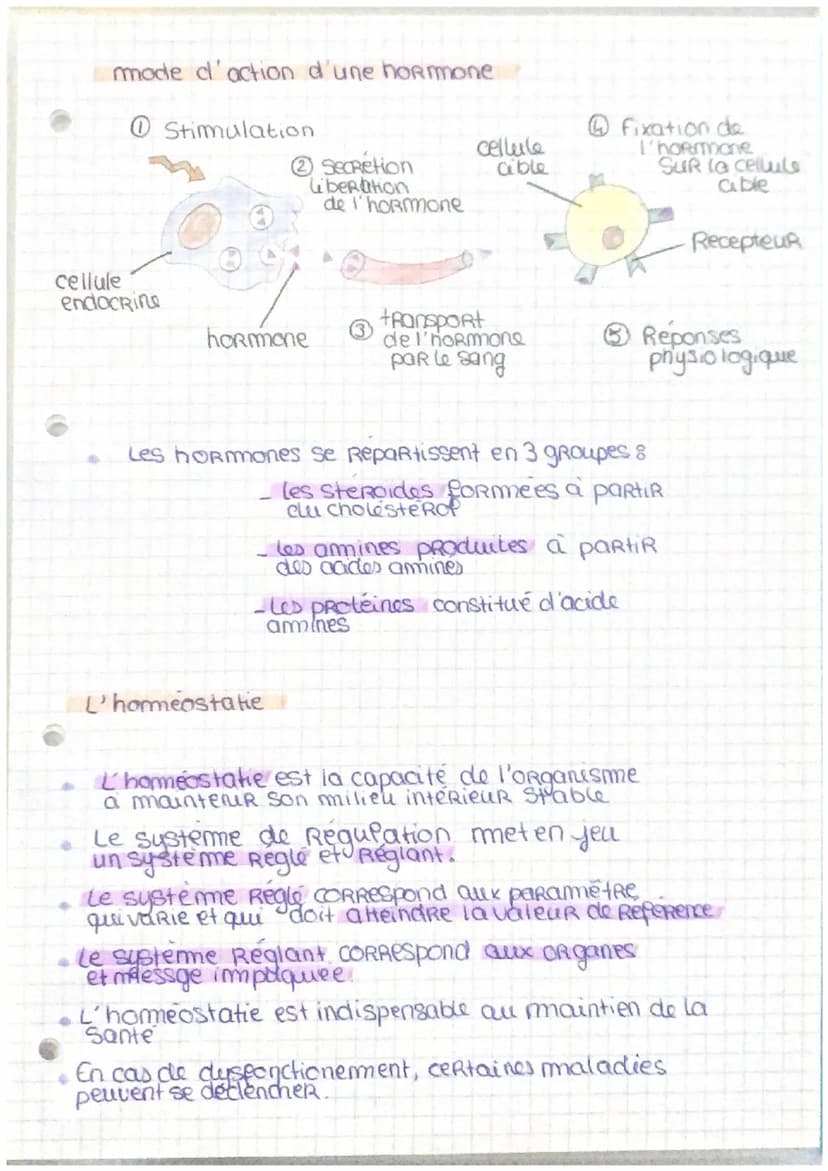 mode d'action d'une hormone
① Stimulation
② Secrétion
libération
de l'hormone
cellule
cible
④ Fixation de
l'hormone
sur la cellule
cible
Recepteur
cellule
endocrine
hormone
③ transport
de l'hormone
par le sang
⑤ Réponses
physiologique
Les hormones se répartissent en 3 groupes :
- les steroides formées à partir
du cholésterol
- les amines produites à partir
des acides aminés
- Les protéines constitué d'acide
aminés
L'homéostatie
L'homéostatie est la capacité de l'organisme
à maintenir son milieu intérieur stable
Le système de régulation met en jeu
un système réglé et réglant.
Le système réglé correspond aux paramètre
qui varie et qui doit atteindre la valeur de reference
Le système réglant correspond aux organes
et messge impliquée
L'homéostatie est indispensable au maintien de la
santé
En cas de dysfonctionement, certaines maladies
peuvent se déclencher.